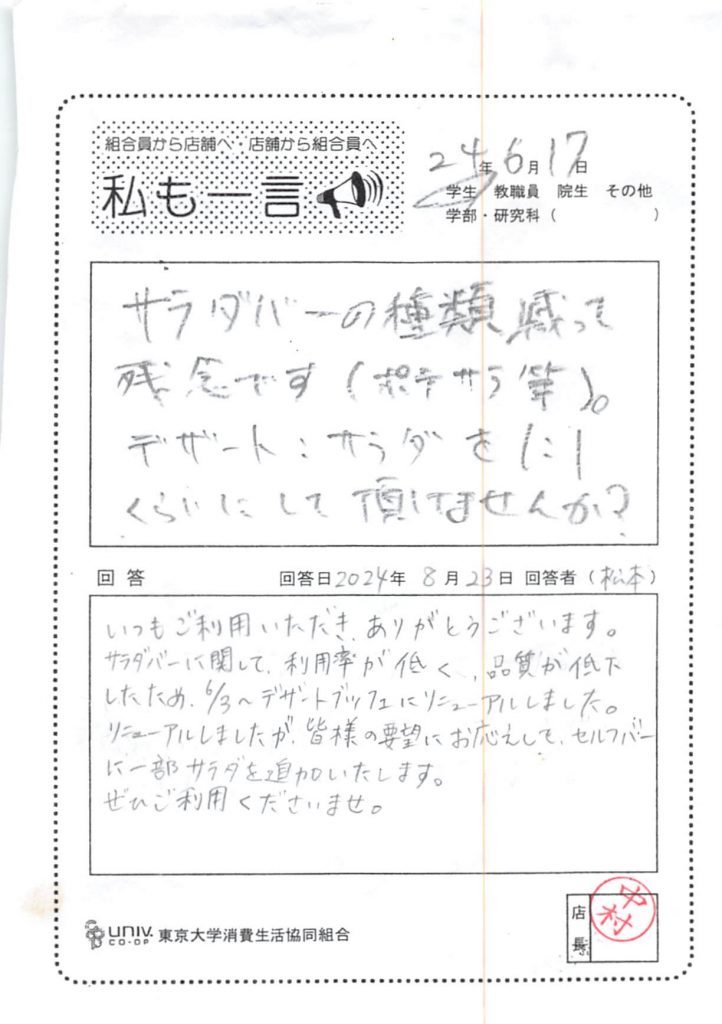 組合員から店舗へ・店舗から組合員へ
私も一言
24年6月17日
学生 教職員 院生 その他
学部・研究科（ ）
サラダバーの種類減って
残念です（ポテサラ等）。
デザート：サラダを1:1
くらいにして頂けませんか？
回答 回答日2024年 8月23日 回答者（松本）
いつもご利用いただき、ありがとうございます。
サラダバーに関して、利用率が低く、品質が低下
したため、6/3～デザートブッフェにリニューアルしました。
リニューアルしましたが、皆様の要望にお応えして、セルフバー
に一部サラダを追加いたします。
ぜひご利用くださいませ。
UNIV. CO-OP 東京大学消費生活協同組合
店長
中村